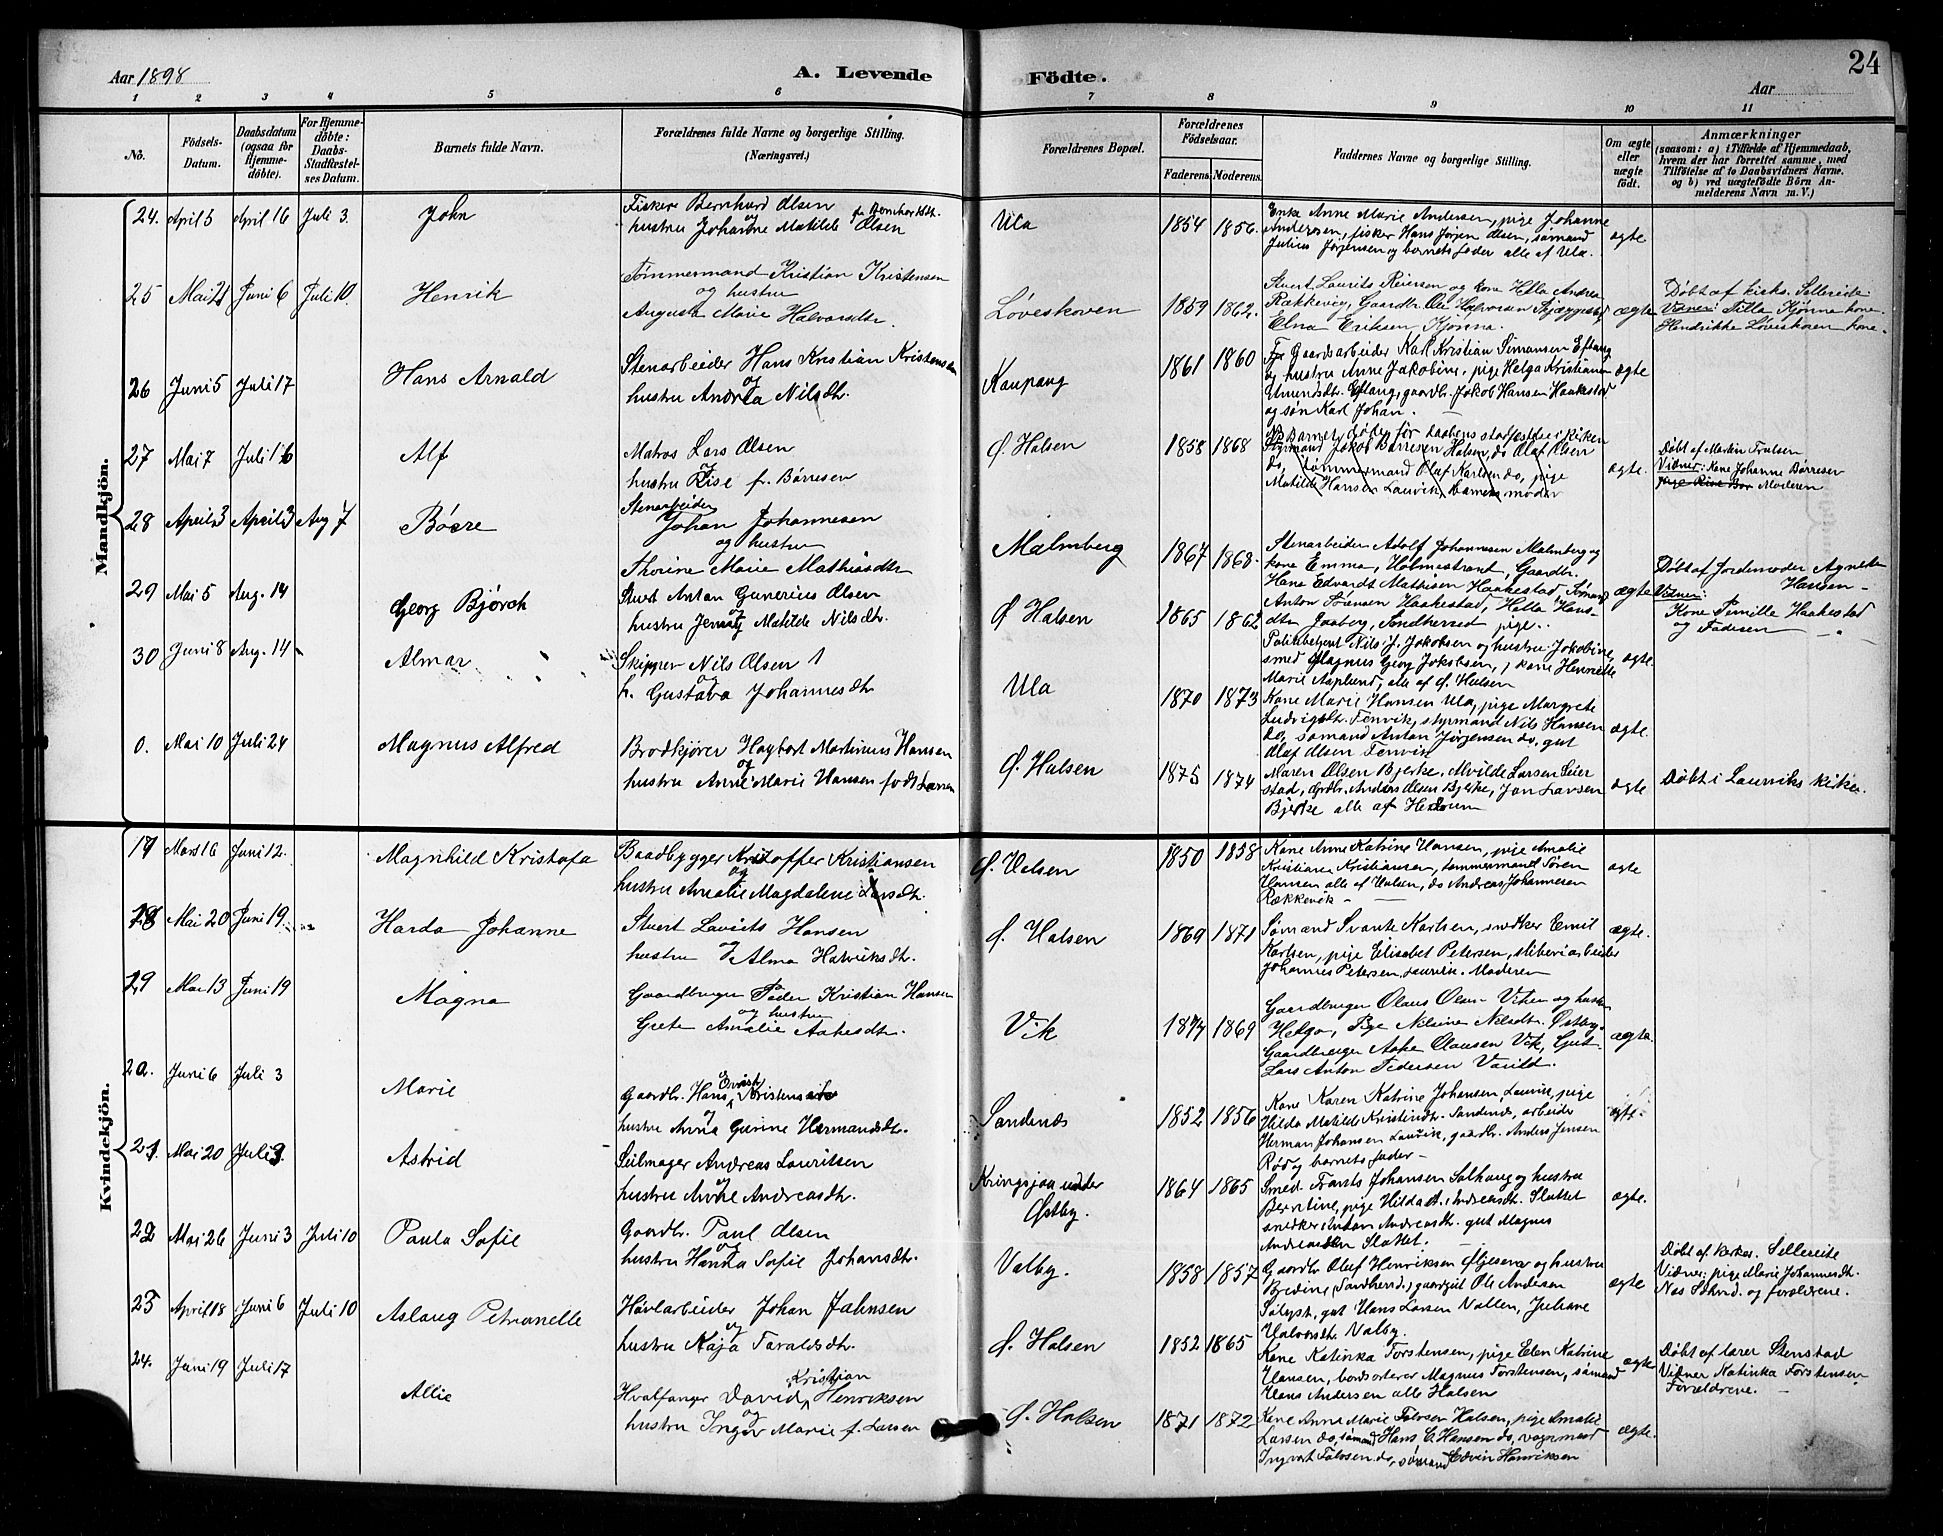 Aar 1898
A. Levende
Födte.
Aar
24
1 2 3 4 5 6 7 8 9 10 11
No.
Födsels-
Datum.
Daabsdatum
(ogsaa for
Hjemme-
döbte).
For Hjemme-
döbte:
Daabs-
Stadfæstel-
ses Datum.
Barnets fulde Navn.
Forældrenes fulde Navne og borgerlige Stilling.
(Næringsvei.)
Forældrenes Bopæl.
Forældrenes
Födselsaar.
Faderens. Moderens.
Faddernes Navne og borgerlige Stilling.
Om ægte
eller
uægte
födt.
Anmærkninger
(saasom: a) i Tilfælde af Hjemmedaab,
hvem der har forrettet samme, med
Tilföielse af to Daabsvidners Navne,
og b) ved uægtefödte Börn An-
melderens Navn m. V.)
Mandkjön.
24. April 5 April 16 Juli 3. John
Fisker Bernhard Olsen
og
hustru Johanne Matilde Olsen
Ula 1854 1856.
Enke Anne Marie Andersen, pige Johanne
Andersen, fisker Hans Jørgen Olsen, sømand
Julius Jørgensen og barnets fader alle af Ula.
ægte
25 Mai 21 Juni 6 Juli 10. Henrik
Tømmermand Kristian Kristensen
og hustru
Augusta Marie Halvorsdtr.
Løveskoven 1859 1862.
Stuert Laurits Reiersen og kone Hella Andrea
Rækkevig, Gaardbr. Ole Halvorsen
Elna Eriksen Kjønna.
ægte
Døbt af kirks. Sellereite
Vidner: Tilla Kjønna kone.
Hendrikke Løveskoven kone.
26 Juni 5 Juli 17 Hans Arnald
Stenarbeider Hans Kristian Kristensen
og
hustru Andrea Nilsdtr.
Kaupang 1861 1860
Gaardsarbeider Karl Kristian Simonsen Eftang
og hustru Anne Jakobine, pige Helga Kristiane
Eftang, gaardbr. Jakob Hansen Haakestad
og søn Karl Johan.
ægte
27 Mai 7 Juli 16 Alf
Matros Lars Olsen
og
hustru Rise f. Børresen
Ø. Halsen 1858 1868
Barnet døde før daabens stadfæstelse i kirken
Jakob Børresen Halsen, do Olaf Olsen
do, tømmermand Olaf Karlsen do, pige
Matilde Hansen Laurvik, barnets moder
ægte.
Døbt af Martin Trulsen
Vidner: Kone Johanne Børresen
Moderen
28 April 3 April 3 Aug 7 Børre
Stenarbeider
Johan Johannesen
og hustru
Thorine Marie Mathiasdtr
Malmberg 1867 1868.
Stenarbeider Adolf Johannesen Malmberg og
kone Emma, Holmestrand, Gaardbr.
Hans Edvardt Mathisen Haakestad, Sømand
Anton Sørensen Haakestad, Hella Hans-
dtr Jaaberg, Sandherred pige.
ægte
Døbt af Jordemoder Agnete
Hansen
Vidner:
Kone Pernille Haakestad
og Faderen
29 Mai 5 Aug. 14 Georg Bjørch
Stuert Anton Gunerius Olsen
og
hustru Jenny Matilde Nilsdtr.
Ø Halsen 1865 1862
Politibetjent Nils J. Jakobsen og hustru Jakobine,
smed Magnus Georg Jakobsen, kone Henriette
Marie Asplund, alle af Ø. Halsen
ægte.
30 Juni 8 Aug. 14 Almar
Skipper Nils Olsen
og
h. Gustava Johannesdtr
Ula 1870 1873
Kone Marie Hansen Ula, pige Margrete
Ludvigsdtr. Fenvik, styrmand Nils Hansen
do, sømand Anton Jørgensen do, gut
Olaf Olsen Fenvik
ægte.
0. Mai 10 Juli 24 Magnus Alfred
Brødkjører Hagbart Martinius Hansen
og
hustru Anne Marie Hansen født Larsen
Ø. Halsen 1875 1874
Maren Olsen Bjerke, Alvilde Larsen Seier
stad, grdbr. Anders Olsen Bjerke, Jon Larsen
Bjerke alle af Hedrum
ægte
Døbt i Laurviks kirke.
Kvindekjön.
17 Mars 16 Juni 12. Magnhild Kristofa
Baadbygger Kristoffer Kristiansen
og
hustru Amalie Magdalene Larsdtr.
Ø. Halsen 1850 1858
Kone Anne Katrine Hansen, pige Amalie
Kristiane Kristiansen, tømmermand Søren
Hansen alle af Halsen, do Andreas Johannesen
Rækkevik
ægte
18 Mai 20 Juni 19. Harda Johanne
Stuert Laurits Hansen
hustru Alma Henriksdtr.
Ø. Halsen 1869 1871
Sømand Svante Karlsen, snedker Emil
Karlsen, pige Elisabet Petersen, arbeider
Johannes Petersen, Laurvik. Moderen
ægte.
19 Mai 13 Juni 19 Magna
Gaardbruger Peder Kristian Hansen
og hustru
Grete Amalie Aakesdtr.
Vik 1874 1869
Gaardbruger Olaus Olsen og hustru
Helga, Pige Nilsine Nilsdtr. Østby.
Gaardbruger Aake Olaussen Vik, Gut
Lars Anton Pedersen Varild.
ægte.
20. Juni 6 Juli 3 Marie
Gaardbr. Hans Kristensen
og
hustru Anna Gurine Hermandsdtr.
Sandenæs 1852 1856
Kone Karen Katrine Johansen, Laurvik, pige
Hilda Matilde Kristinsdtr. Sandenæs, arbeider
Herman Johansen Laurvik, gaardbr. Anders Jensen
Rød og barnets fader
ægte.
21. Mai 20 Juli 3. Astrid
Seilmager Andreas Lauritsen
og
hustru Anne Andreasdtr.
Kringsjaa under
Østby.
1864 1865
Smed Frants Johansen Solhaug og hustru
Berntine, pige Hilda A. Andreasdtr. Slottet
snedker Anton Andreasdtr. gut Magnus
Andreassen Slottet.
ægte.
22 Mai 26 Juni 3 Juli 10 Paula Sofie
Gaardbr. Paul Olsen
og
hustru Hanna Sofie Johansdtr.
Valby. 1858 1857
Gaardbr Olaf Henriksen og hustru
Bredine, (Sandherred,) gaardgut Ole Andersen
gut Hans Larsen Vallen, Juliane
Halvorsdtr. Valby.
ægte
Døbt af kirkes. Sellereite
Vidner: pige Marie Johannesdtr.
Næs Sdhrd. og forældrene.
23 April 18 Juni 6 Juli 10 Aslaug Petronelle
Høvlarbeider Johan Jahnsen
og
hustru Kaja Taraldsdtr.
Ø. Halsen 1852 1865
Kone Katinka Torstensen, pige Elen Katrine
Hansen, bordsorterer Magnus Torstensen, sømand
Hans Andersen alle Halsen
ægte
Døbt af lærer Stenstad
Vidner Katinka Torstensen
Forældrene.
24. Juni 19 Juli 17 Allie
Hvalfanger David Kristian Henriksen
og
hustru Inger Marie f. Larsen
Ø. Halsen 1871 1872
Kone Anne Marie Halsen, pige Amalie
Larsen do, sømand Hans C. Hansen do, vognmand
Ingvart do, sømand Edvin Henriksen
ægte.